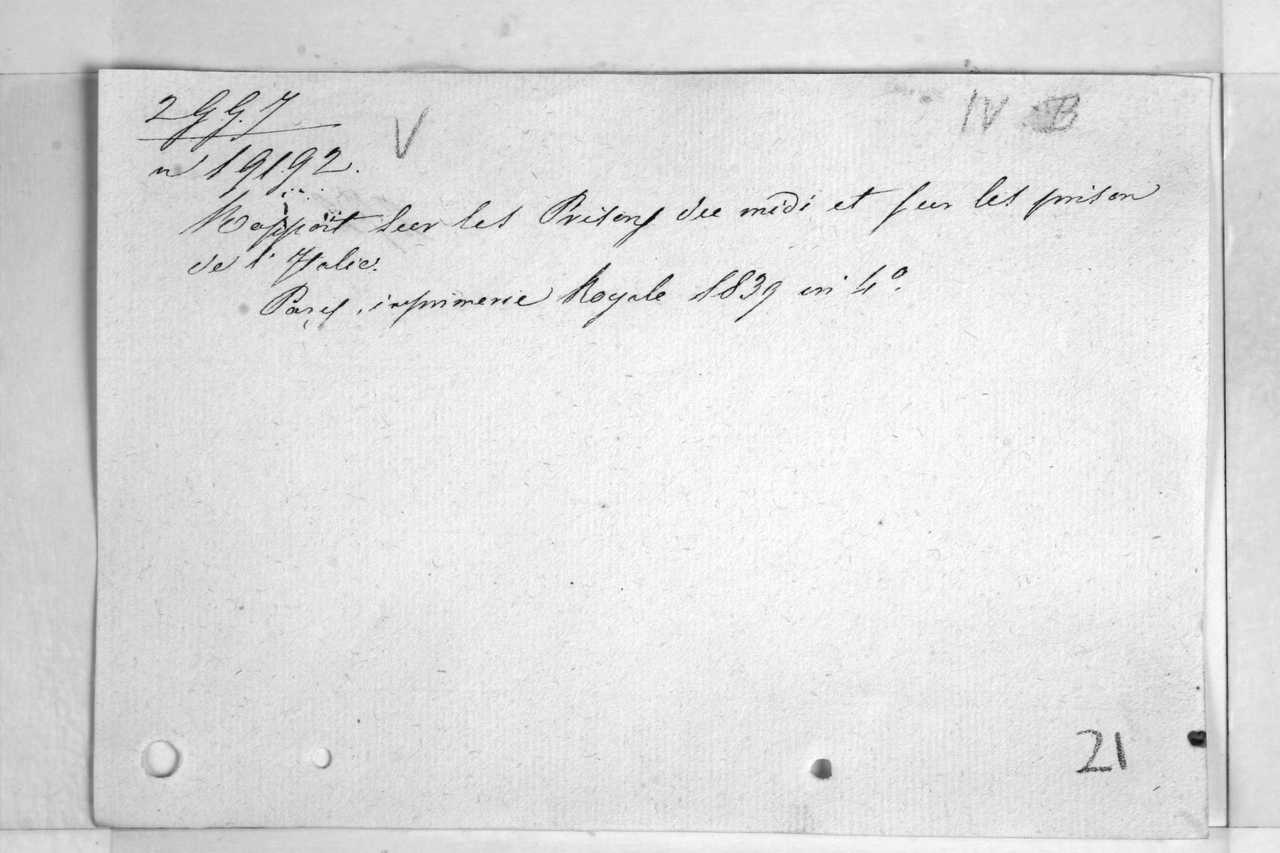 2 G G. 7
V
IV B
n° 19192.
Rapport sur les Prisons du midi et sur les prison
de l'Italie.
Paris, imprimerie Royale 1839 in 4°.
21